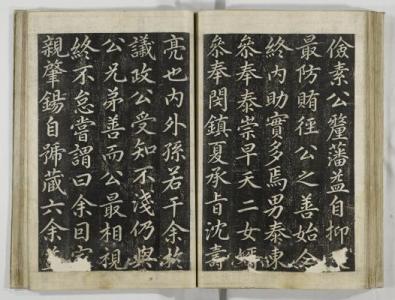 儉素公釐藩益自抑
最防賄徑公之善始令
終內助實多焉男泰東
叅奉泰崇早夭二女婿
叅奉閔鎮夏承旨沈壽
亮也內外孫若干余於
議政公受知不淺仍與
公兄弟善而公最相視
終不怠嘗謂曰余回家
親肇錫自號蔵六余